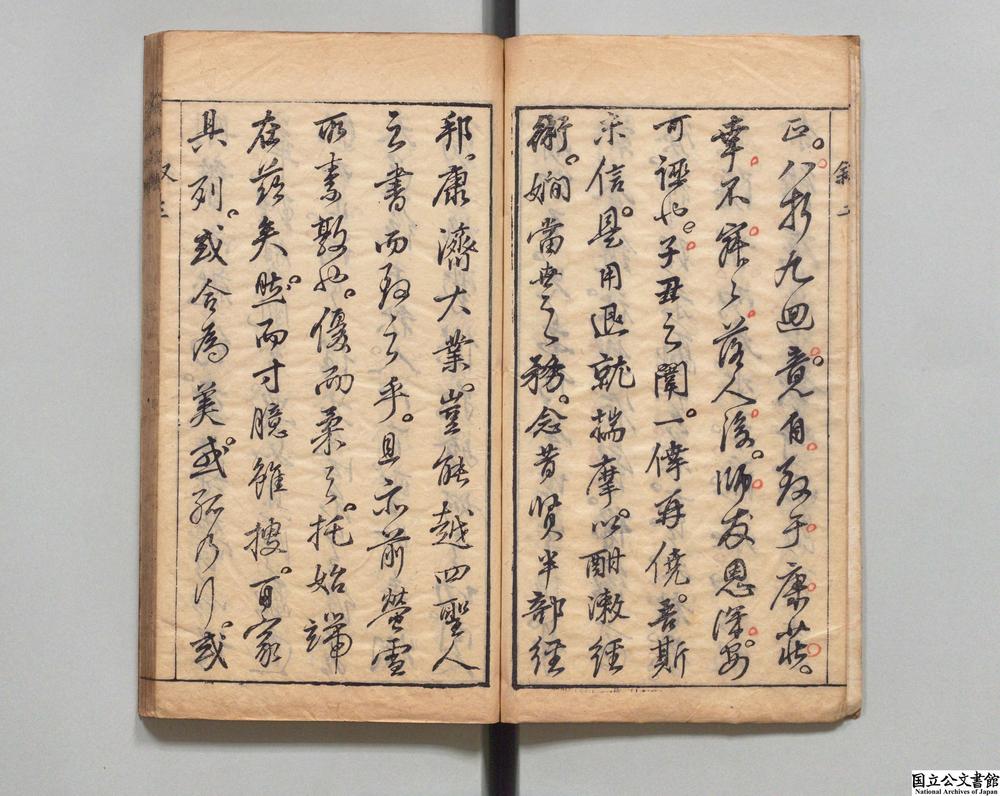 叙二
正。八折九迴。竟自致于康莊。
幸不寂々落人後。師友恩深。安
可誣也。子丑之闈。一倖再僥。吾斯
未信。是用退就揣摩。以酣漱經
術。嫺當世之務。念昔賢半部經
邦。康濟大業。豈能越四聖人
之書而致之乎。且亦前螢雪
所素敦也。優而柔之。托始端
在茲矣。然而寸臆雖搜。百家
具列。或合為美。或孤乃行。或
又三
国立公文書館
National Archives of Japan